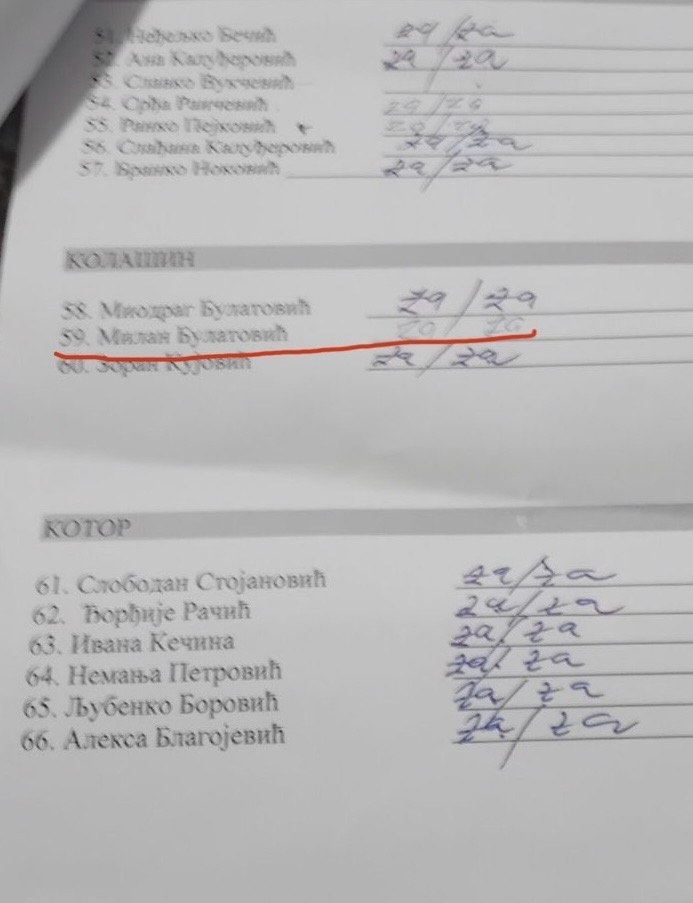 51. Неђељко Бечић za/za
52. Ана Калуђеровић za/za
53. Славко Вукчевић
54. Срђа za/za
55. Ранко Пејковић za/za
56. Слађана Калуђеровић za/za
57. Бранко Ноковић za/za
КОЛАШИН
58. Миодраг Булатовић za/za
59. Милан Булатовић za za
60. Зоран Кујовић za/za
КОТОР
61. Слободан Стојановић za/za
62. Ђорђије Рачић za/za
63. Ивана Кечина za/za
64. Немања Петровић za/za
65. Љубенко Боровић za/za
66. Алекса Благојевић za/za